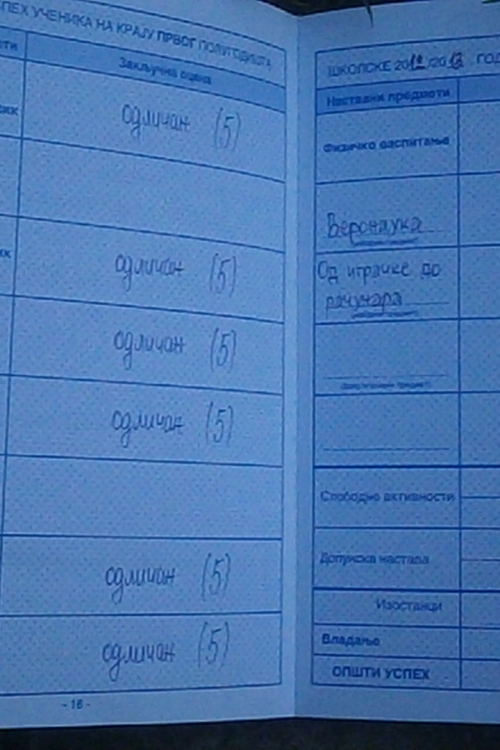 УСПЕХ УЧЕНИКА НА КРАЈУ ПРВОГ ПОЛУГОДИШТА
Закључна оцена
одличан (5)
одличан (5)
одличан (5)
одличан (5)
одличан (5)
одличан (5)
- 16 -
ШКОЛСКЕ 2012/2013 ГОД
Наставни предмети
Физичко васпитање
Веронаука
Од играчке до
рачунара
Слободне активности
Допунска настава
Изостанци
Владање
ОПШТИ УСПЕХ